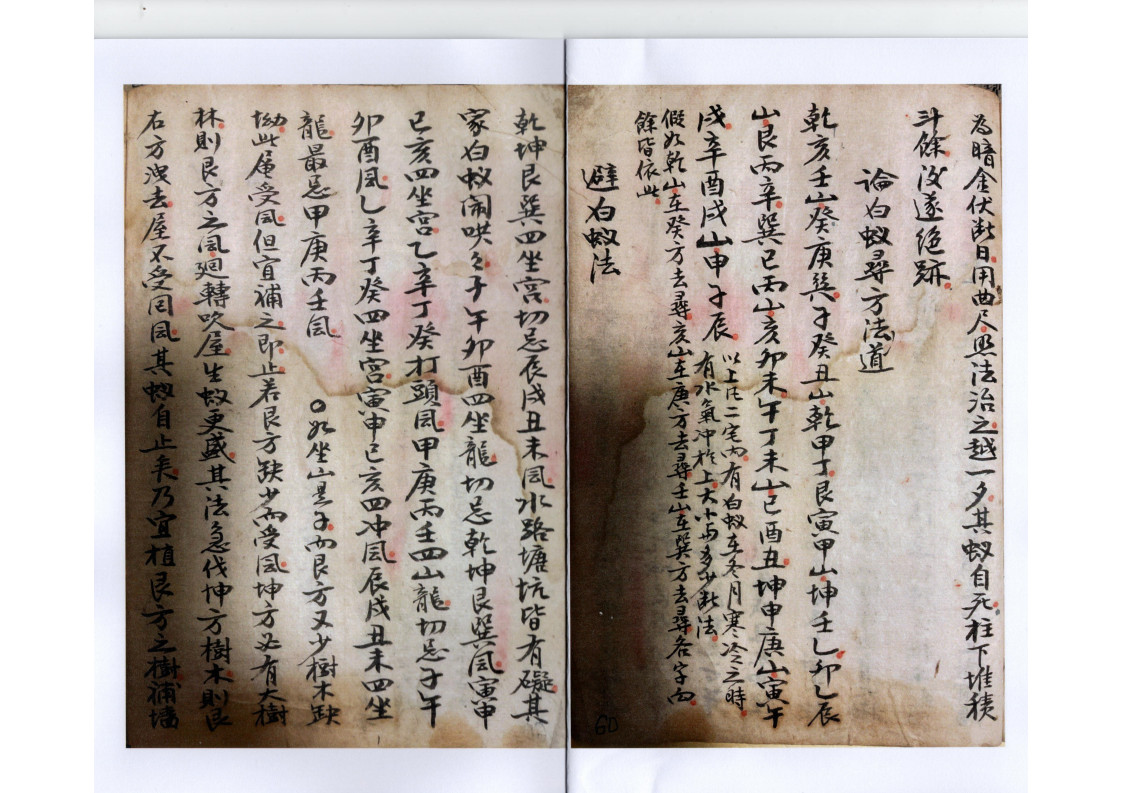 為暗金伏断日用曲尺照法治之越一夕其蚁自死柱下堆積
斗餘後遂绝跡
論白蚁尋方法道
乾亥壬山癸庚巽子癸丑山乾甲丁艮寅甲山坤壬乙卯乙辰
山艮丙辛巽巳丙山亥卯未午丁未山巳酉丑坤申庚山寅午
戌辛酉戌山申子辰
以上凡二宅内有白蚁在冬月寒冷之時
有水氣冲於上大小与多少断法
假如乾山在癸方去尋亥山在庚方去尋壬山在巽方去尋各字向
餘皆依此
避白蚁法
乾坤艮巽四坐宫切忌辰戌丑未风水路塘坑皆有礙其
家白蚁闹哄々子午卯酉四坐龍切忌乾坤艮巽風寅申
巳亥四坐宫乙辛丁癸打頭风甲庚丙壬四山龍切忌子午
卯酉風乙辛丁癸四坐宫寅申巳亥四冲風辰戌丑未四坐
龍最忌甲庚丙壬風
○如坐山是子而艮方又少樹木缺
坳此屋受風但宜補之即止若艮方缺少而受風坤方必有大樹
林則艮方之風廻轉吹屋生蚁更盛其法急伐坤方樹木則艮
右方洩去屋不受风其蚁自止矣乃宜植艮方之樹補墙
60